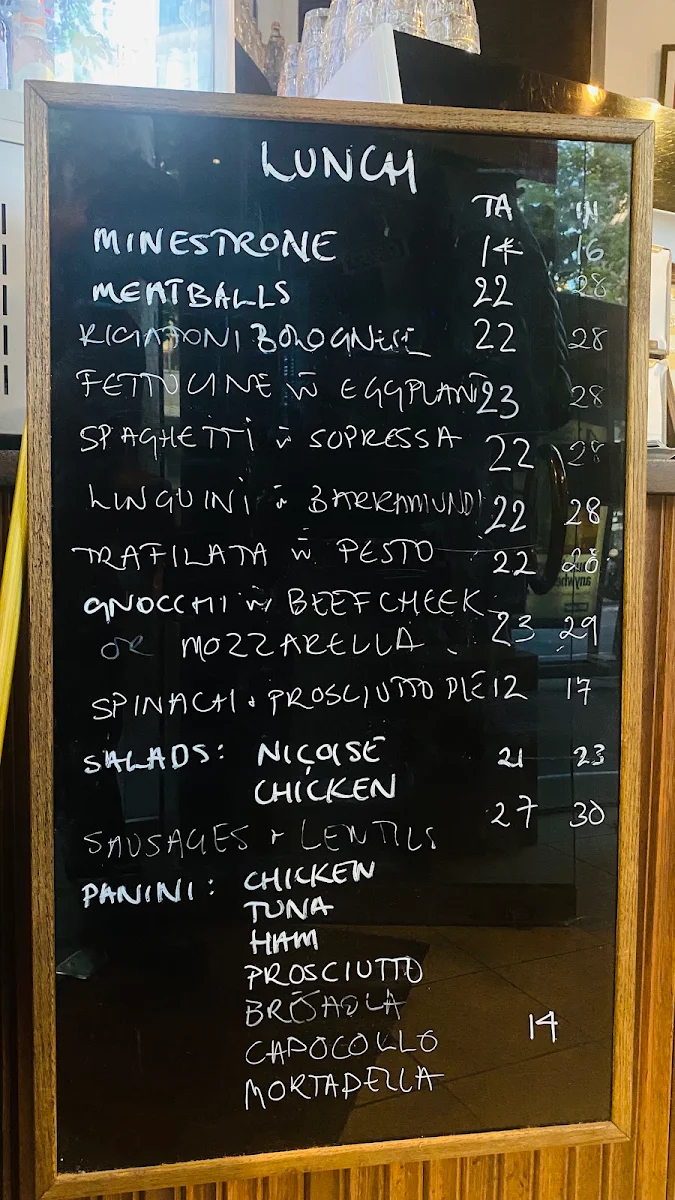 LUNCH
TA IN
MINESTRONE 14 16
MEATBALLS 22 28
RIGATONI BOLOGNESE 22 28
FETTUCINE W EGGPLANT 23 28
SPAGHETTI W SOPRESSA 22 28
LINGUINI W BARRAMUNDI 22 28
TRAFILATA W PESTO 22 28
GNOCCHI W BEEF CHEEK
OR MOZZARELLA 23 29
SPINACH + PROSCIUTTO PIE 12 17
SALADS: NIÇOISE 21 23
CHICKEN
27 30
SAUSAGES + LENTILS
PANINI: CHICKEN
TUNA
HAM
PROSCIUTTO
BRESAOLA
CAPOCOLLO 14
MORTADELLA